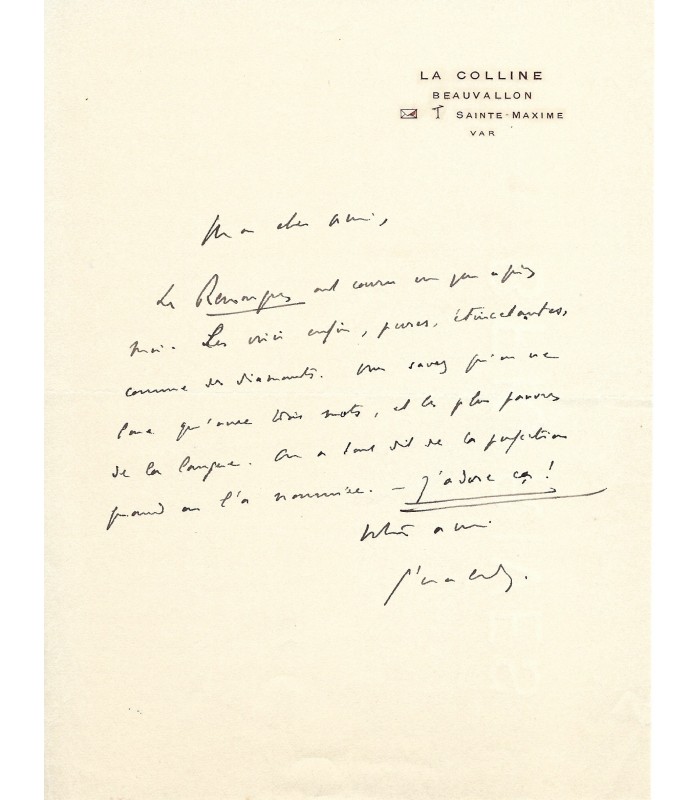 LA COLLINE
BEAUVALLON
SAINTE-MAXIME
VAR
Mon cher ami,
Le ont couru un peu après
moi. Les voici enfin, pures, étincelantes,
comme des diamants. Vous savez qu'on ne
loue qu'avec trois mots, et les plus pauvres
de la langue. On a tout dit de la perfection
quand on l'a nommée. — j'adore ça !
Votre ami